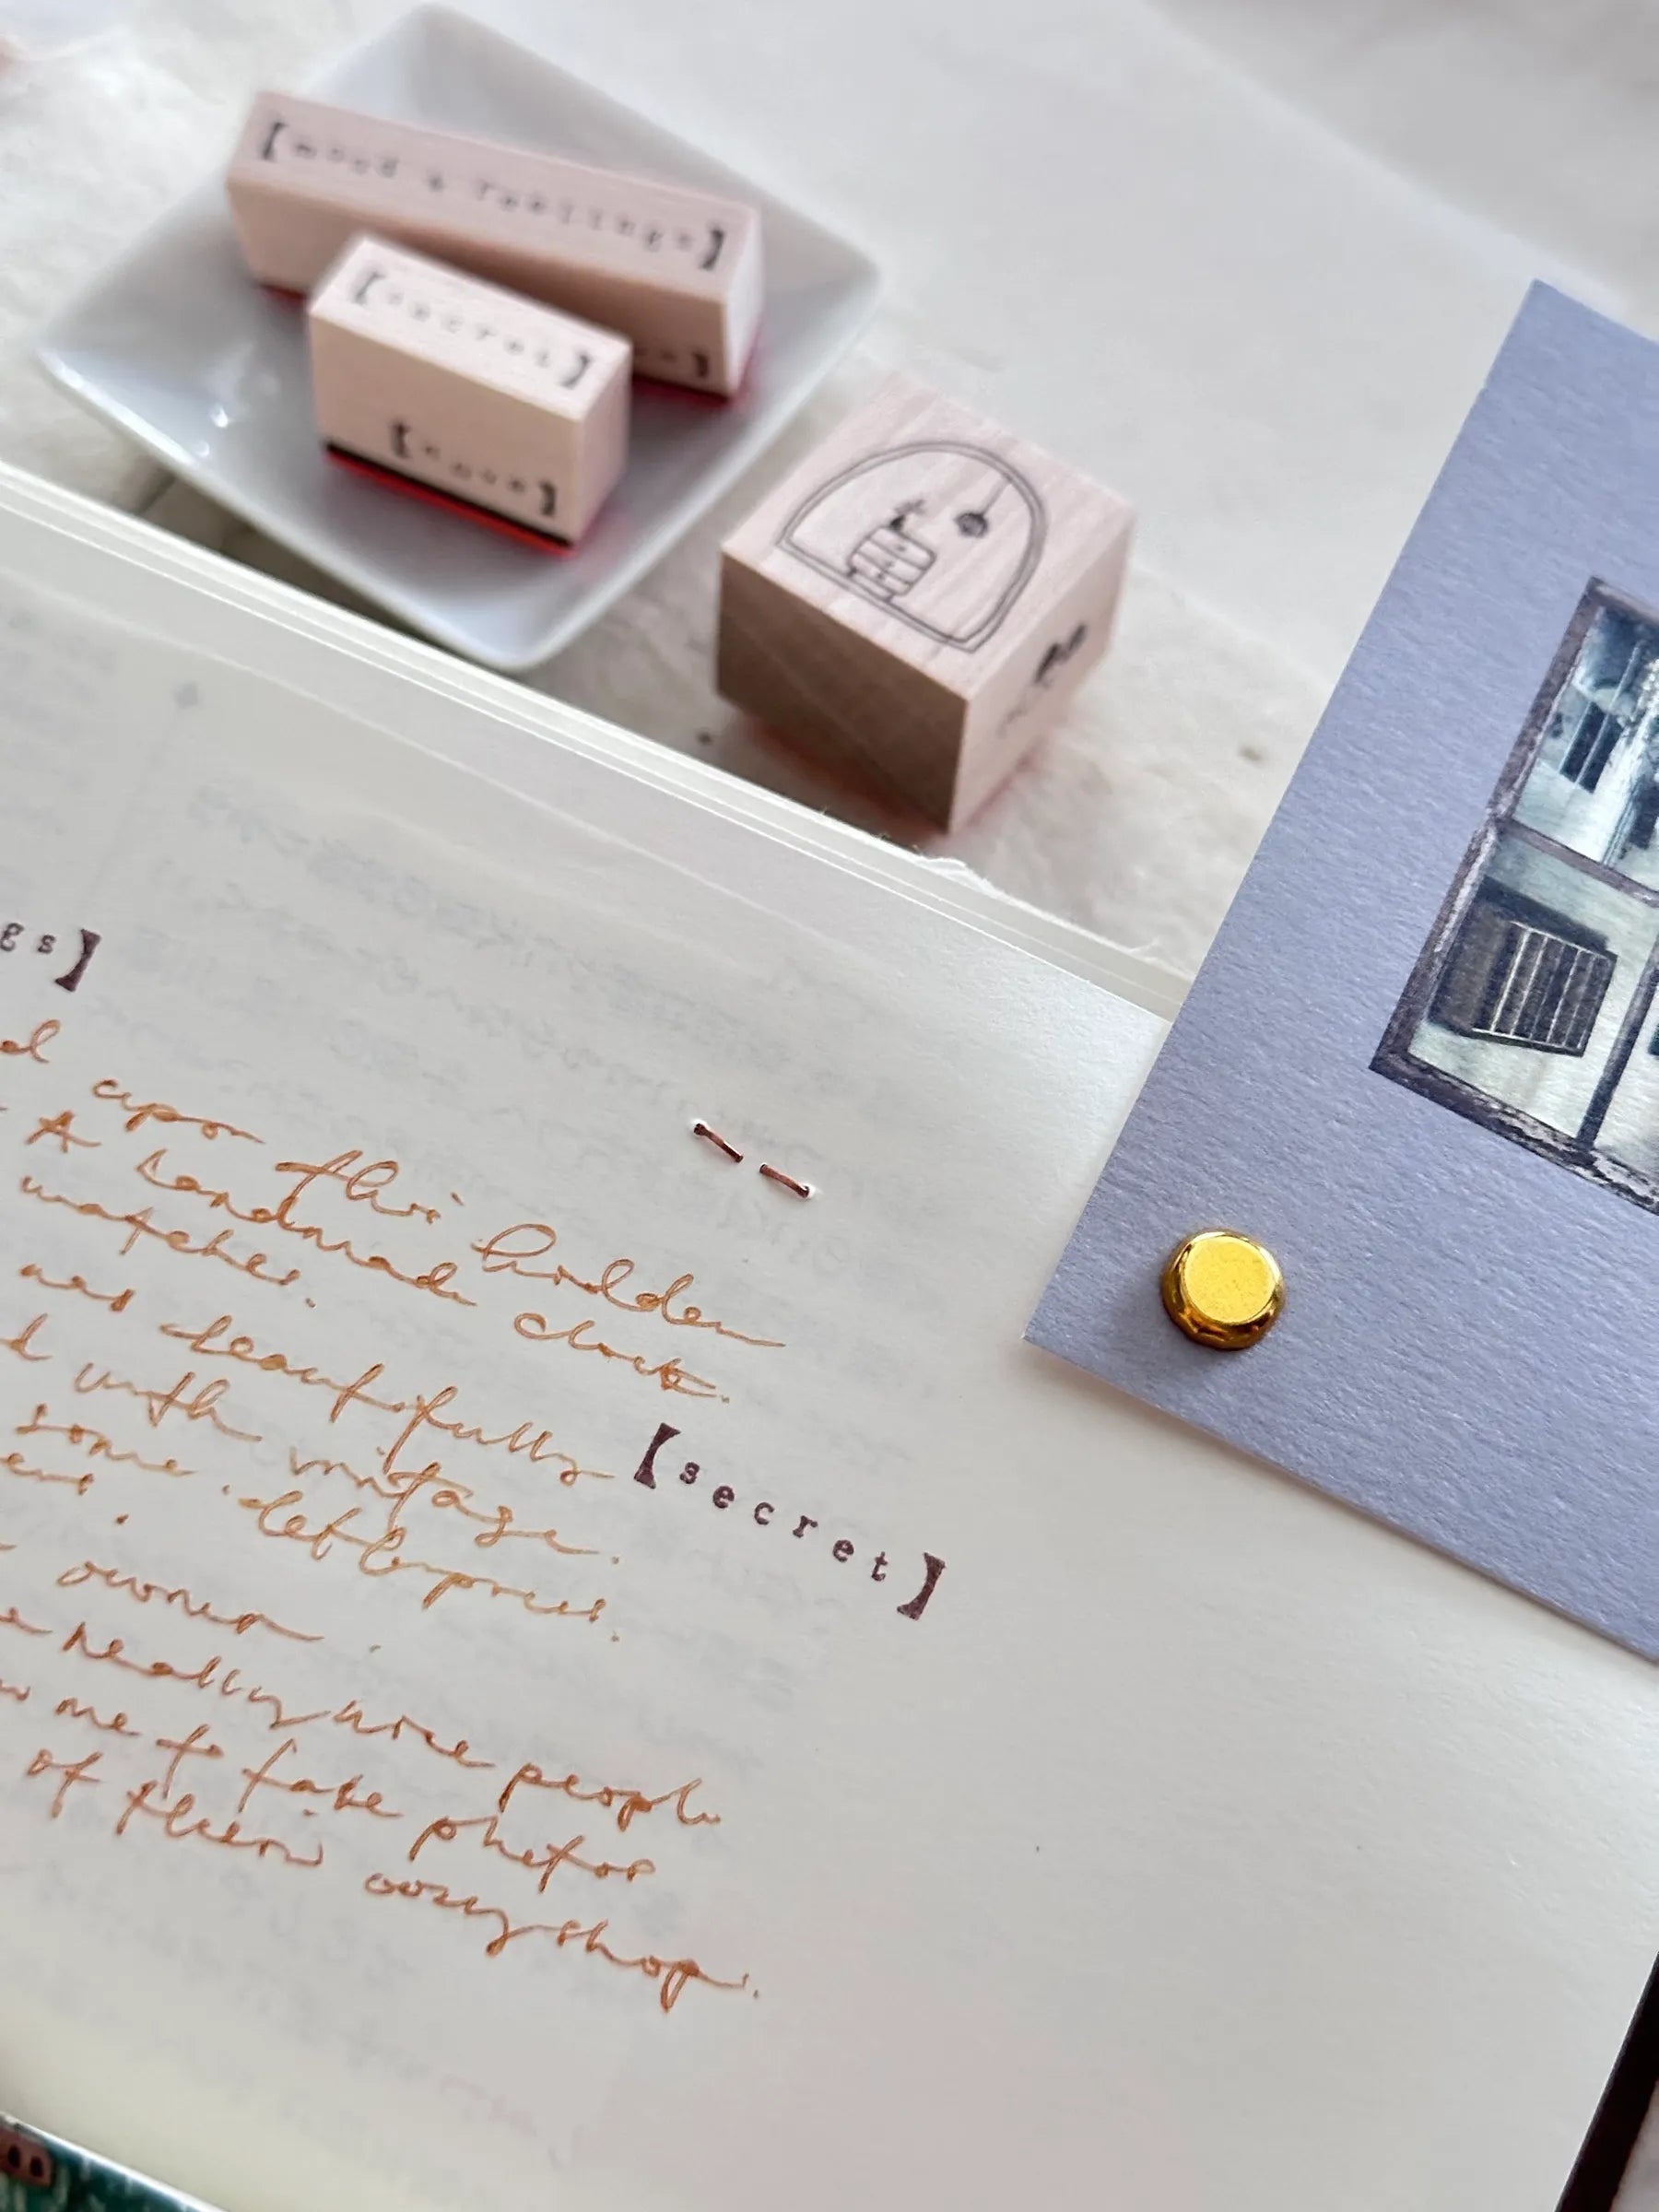 【mood + feelings】
【secret】
gs】
upon this hidden
A handmade clock.
watches.
was beautifully
with vintage.
【secret】
some letterpress.
owner.
really nice people
me to take photos
of their cozy shop.